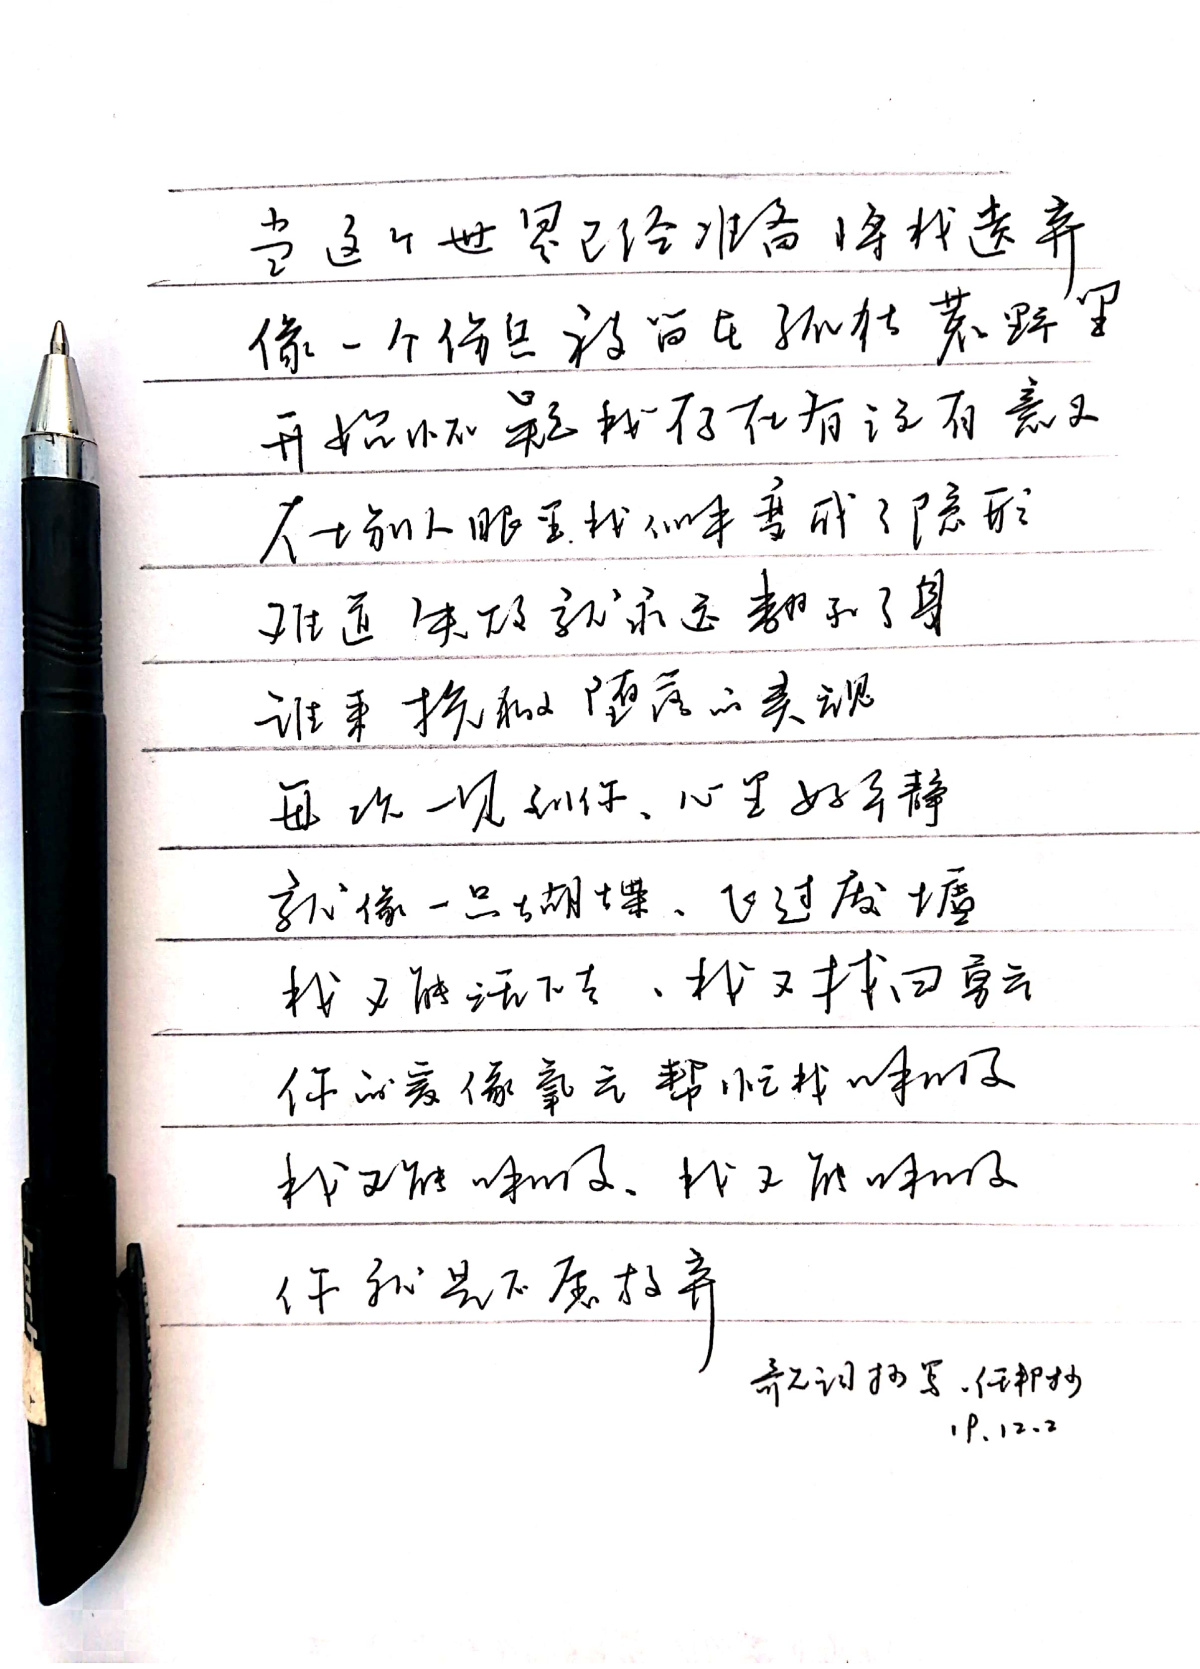 当这个世界已经准备将我遗弃
像一个伤兵被留在孤独荒野里
开始怀疑我存在有没有意义
在别人眼里我似乎变成了隐形
难道失败就永远翻不了身
谁来挽救堕落的灵魂
每次一见到你、心里好平静
就像一只蝴蝶、飞过废墟
我又能活下去、我又找回勇气
你的爱像氧气帮忙我呼吸
我又能呼吸、我又能呼吸
你就是不愿放弃
歌词抄写、任邦抄
19.12.2